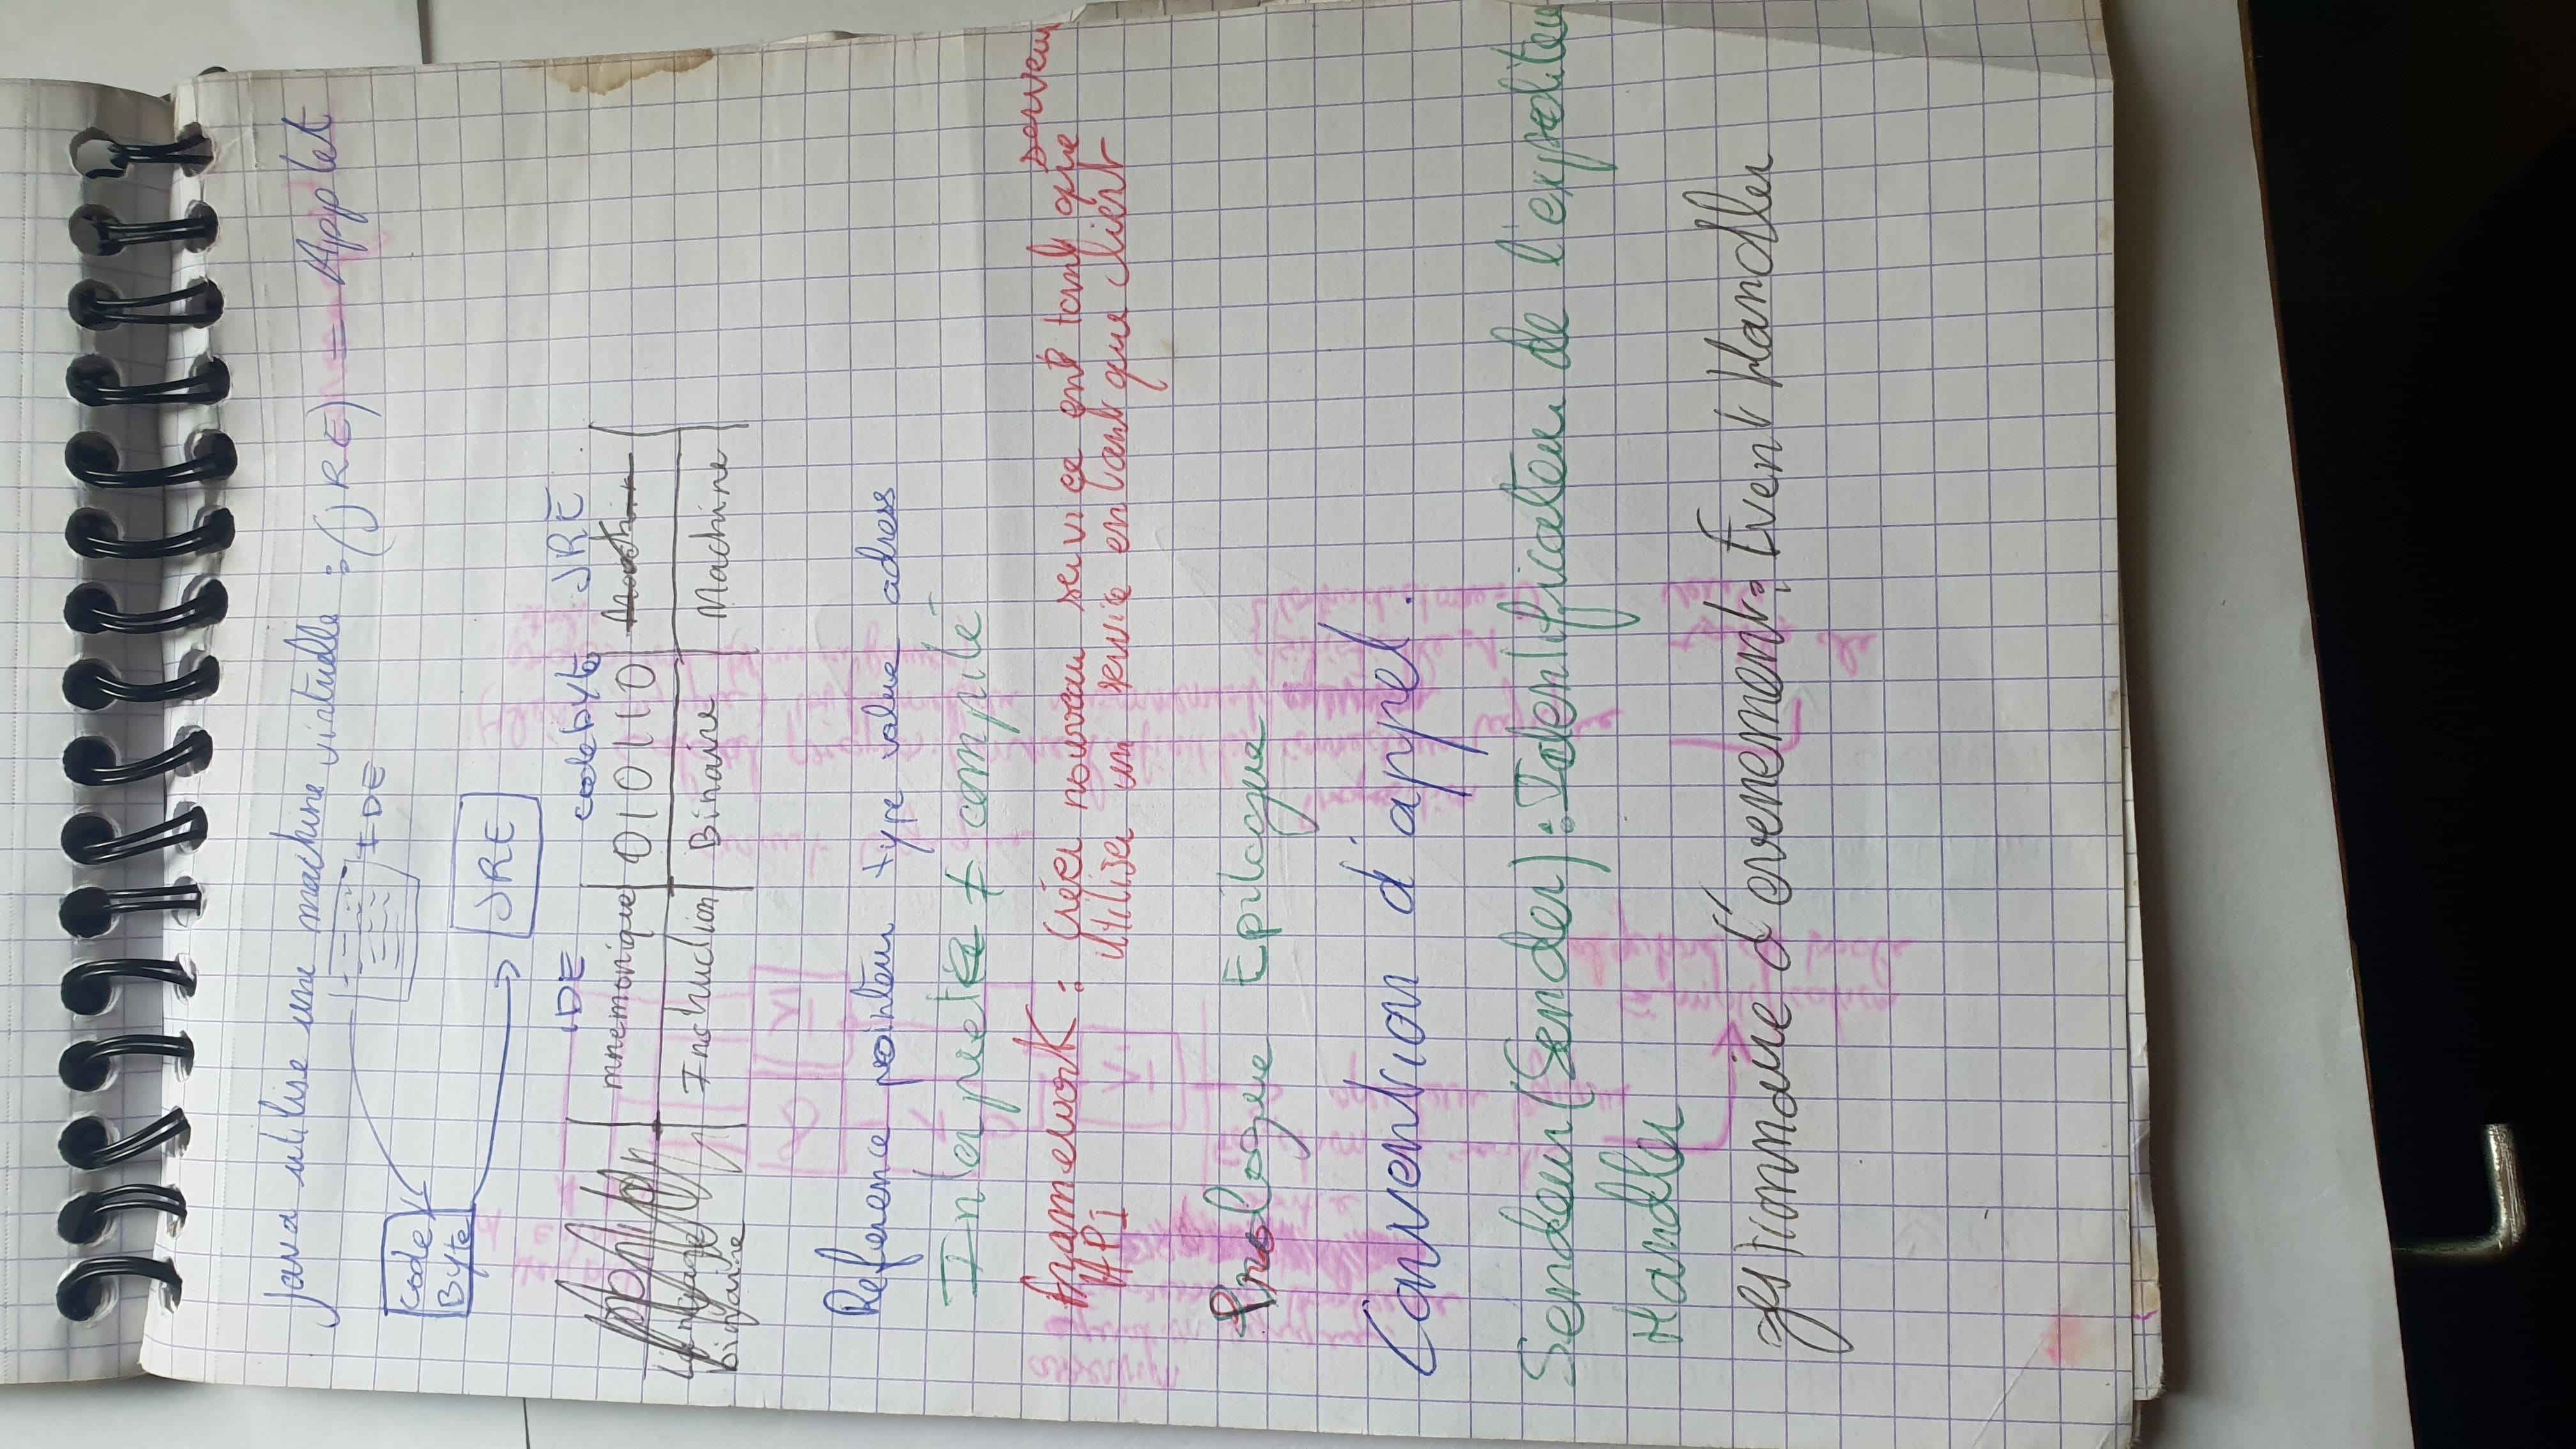 Java utilise une machine virtuelle : (JRE) = Applet
IDE
code
Byte
JRE
IDE codebyte JRE
mnemonique 010110
Langage Instruction Binaire Machine
binaire
Reference pointeur type value adress
Interpreté ≠ compilé
serveur
framework : créer nouveau service ent tant que
API utiliser un service en tant que client
Prologue Epilogue
Convention d'appel.
Sendeur (Sender) : Identificateur de l'expediteur
Handler
gestionnaire d'évenement : Event Handler